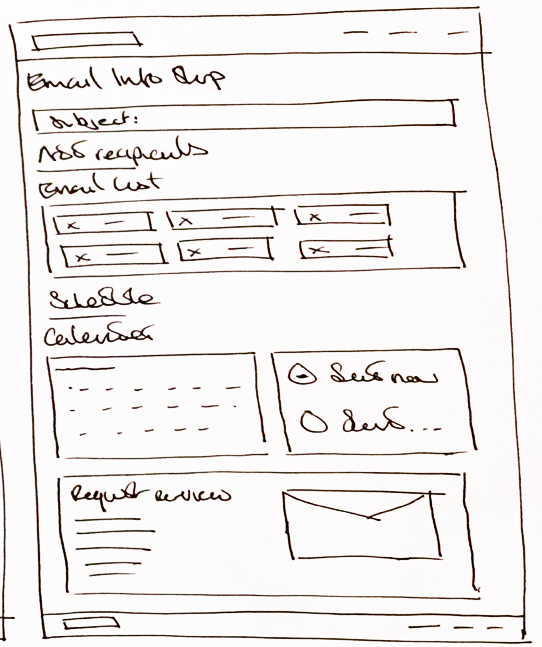 Email Info Sup
Subject:
Add recipients
Email List
x
x
x
x
x
x
Schedule
Calendar
Send now
Send...
Request review